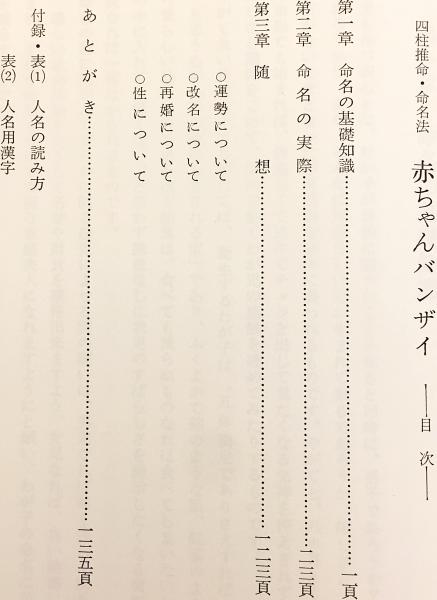 四柱推命・命名法 赤ちゃんバンザイ ――目次――
第一章 命名の基礎知識……………………一頁
第二章 命名の実際……………………二三頁
第三章 随想……………………一二三頁
○運勢について
○改名について
○再婚について
○性について
あとがき……………………一三五頁
付録・表⑴ 人名の読み方
表⑵ 人名用漢字